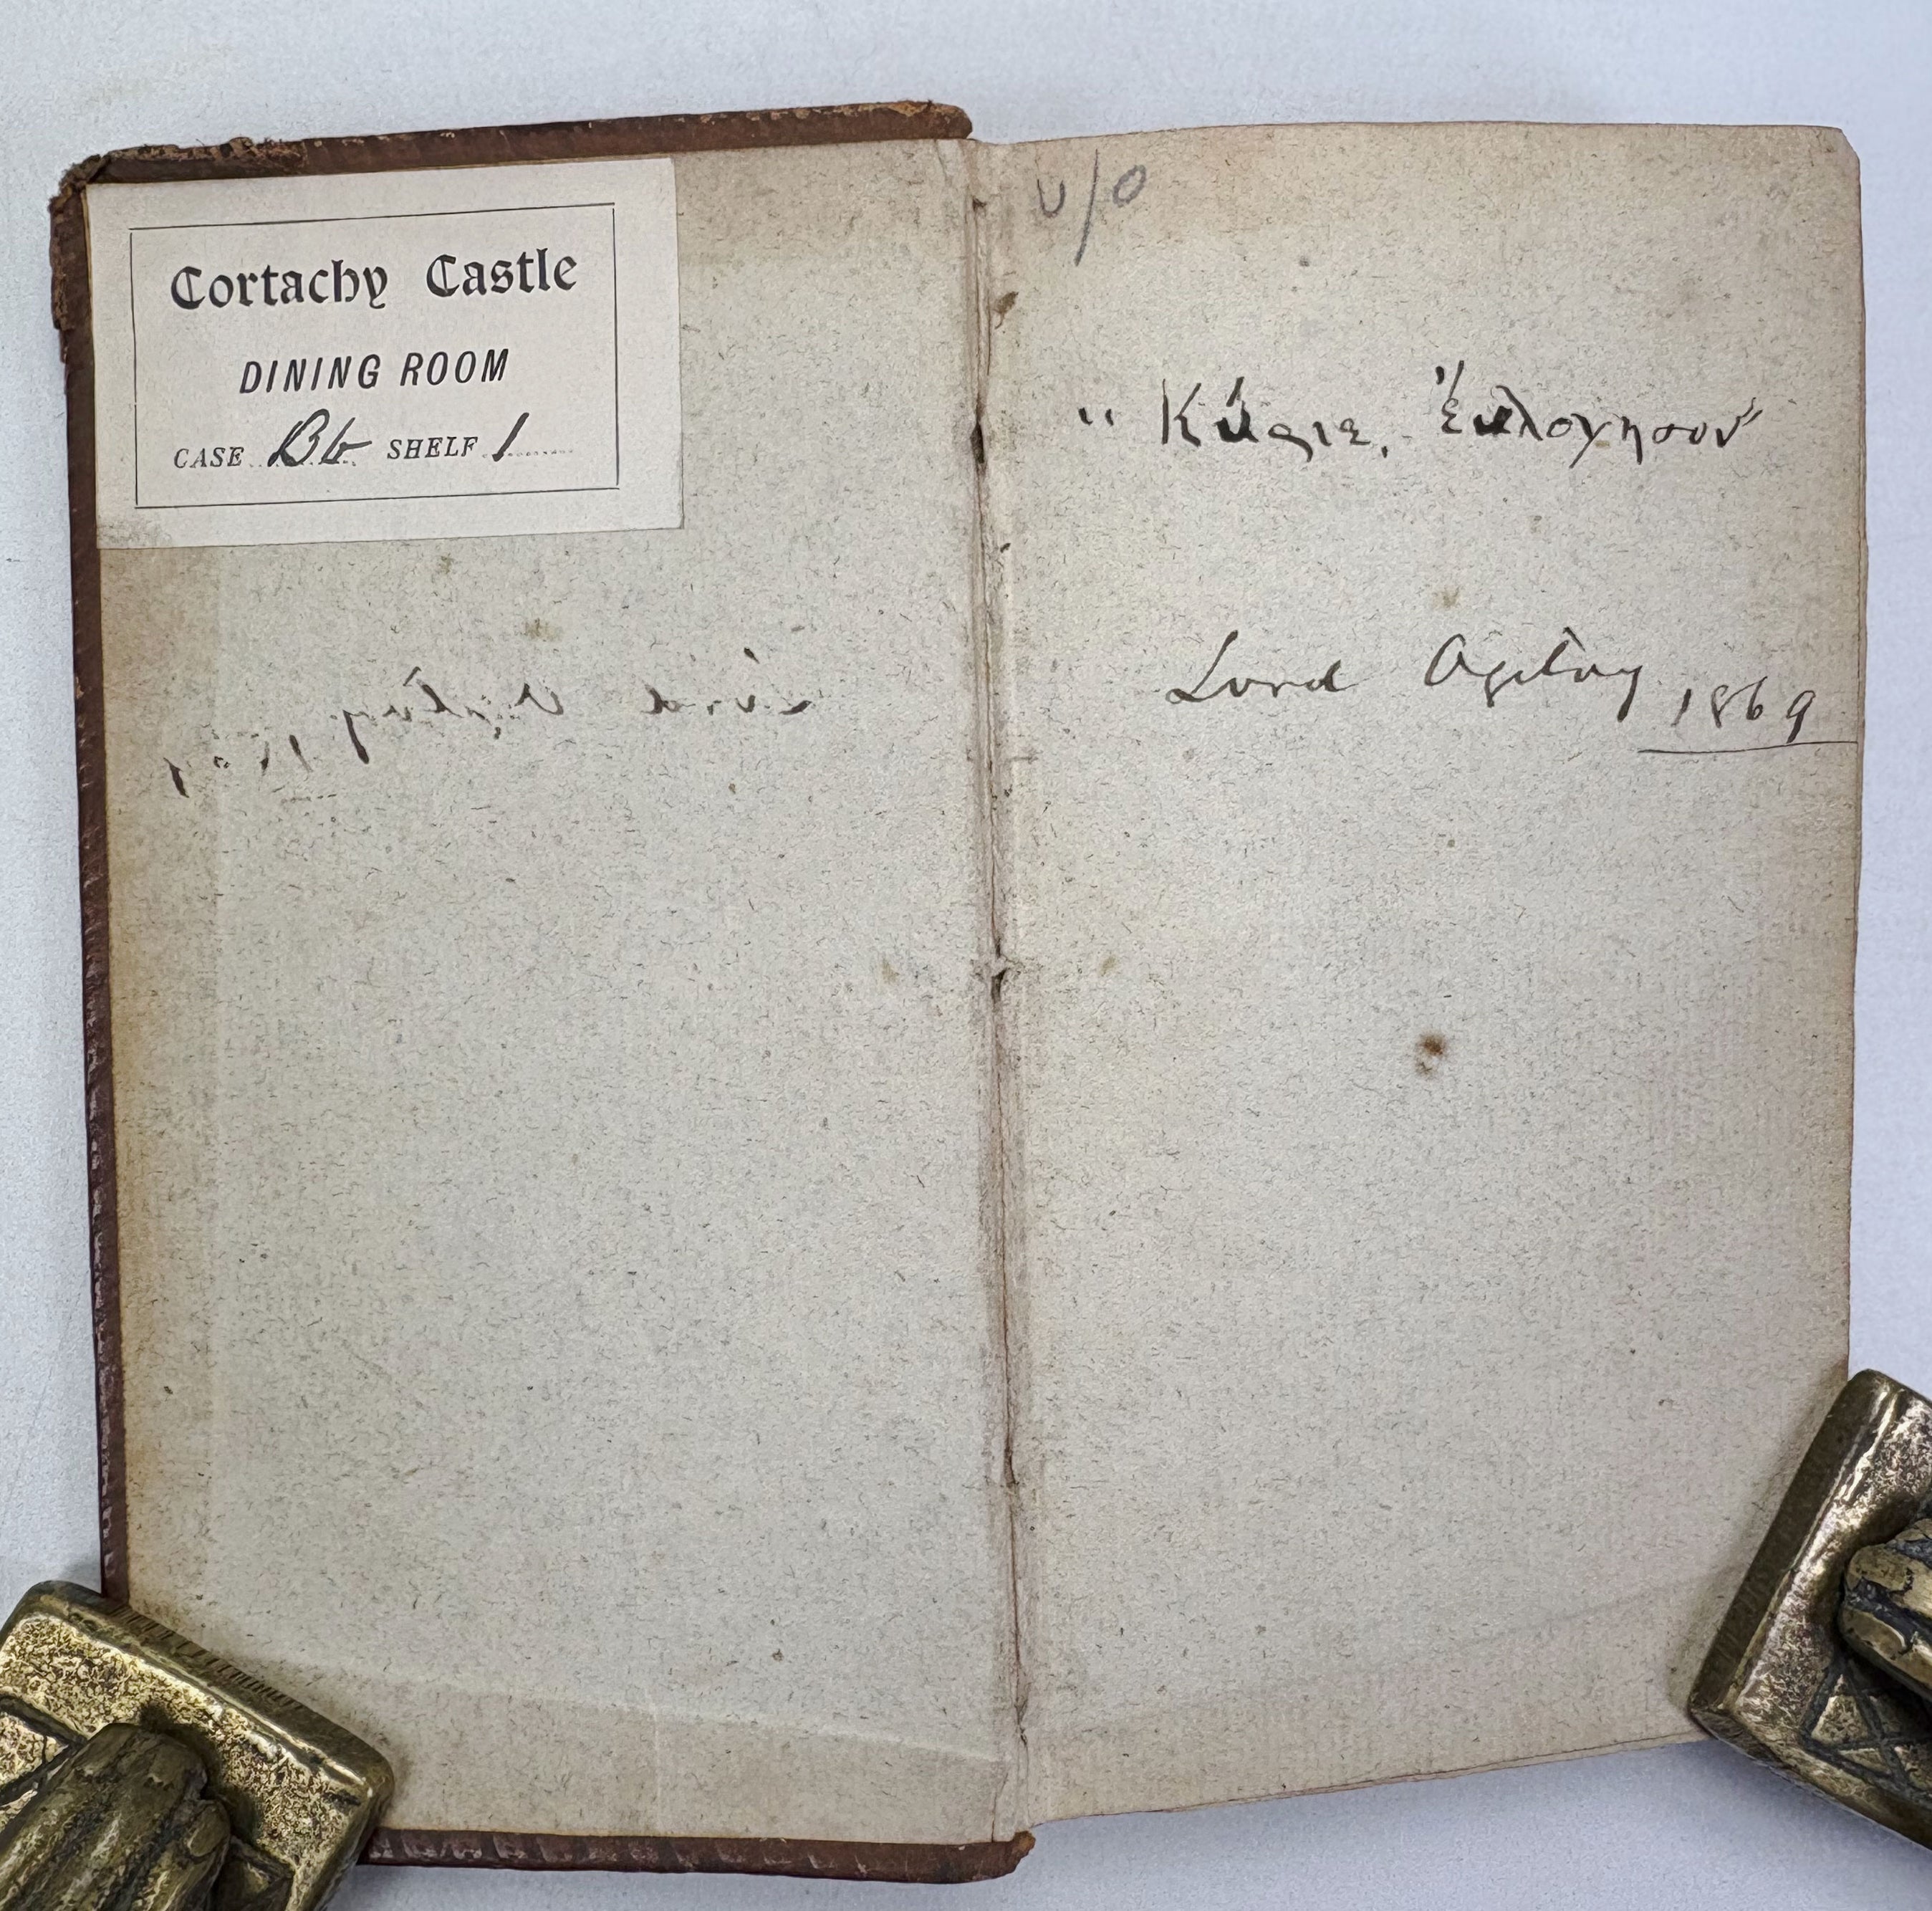 Cortachy Castle
DINING ROOM
CASE Bb SHELF 1
v/o
" Κύριε, ἔυλογησον"
Lord Ogilvy 1869